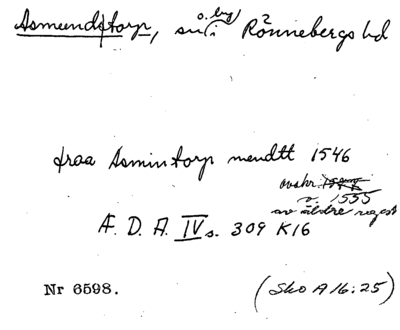 Asmundstorp, sn i Rönnebergs hd
o. by
fraa Asmintorp mendtt 1546
avskr.
c. 1555
av äldre regest
Æ. D. A. IV s. 309 K16
Nr 6598.
(Sko A 16:25)